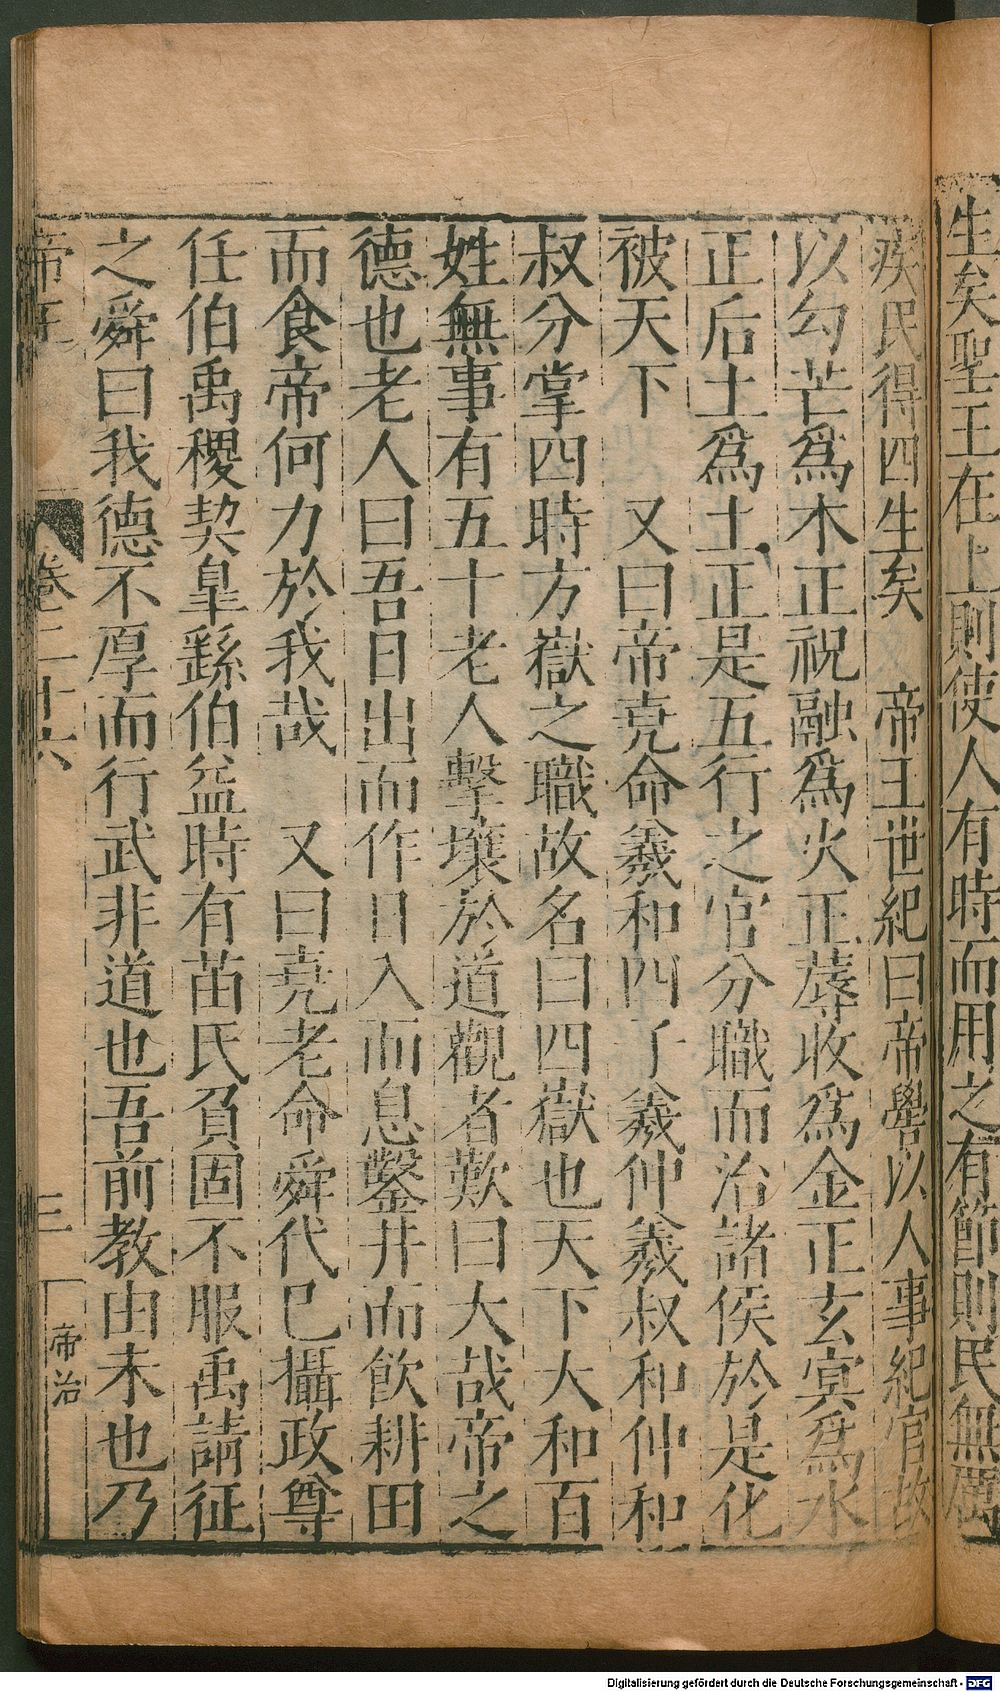 生矣聖王在上則使人有時而用之有節則民無厲
疾民得四生矣　帝王世紀曰帝嚳以人事紀官故
以勾芒爲木正祝融爲火正蓐收爲金正玄冥爲水
正后土爲土正是五行之官分職而治諸侯於是化
被天下　又曰帝堯命羲和四子羲仲羲叔和仲和
叔分掌四時方嶽之職故名曰四嶽也天下大和百
姓無事有五十老人擊壤於道觀者歎曰大哉帝之
德也老人曰吾日出而作日入而息鑿井而飲耕田
而食帝何力於我哉　又曰堯老命舜代己攝政尊
任伯禹稷契皐繇伯益時有苗氏負固不服禹請征
之舜曰我德不厚而行武非道也吾前教由未也乃
帝王　卷二十六　三　帝治
Digitalisierung gefördert durch die Deutsche Forschungsgemeinschaft - DFG